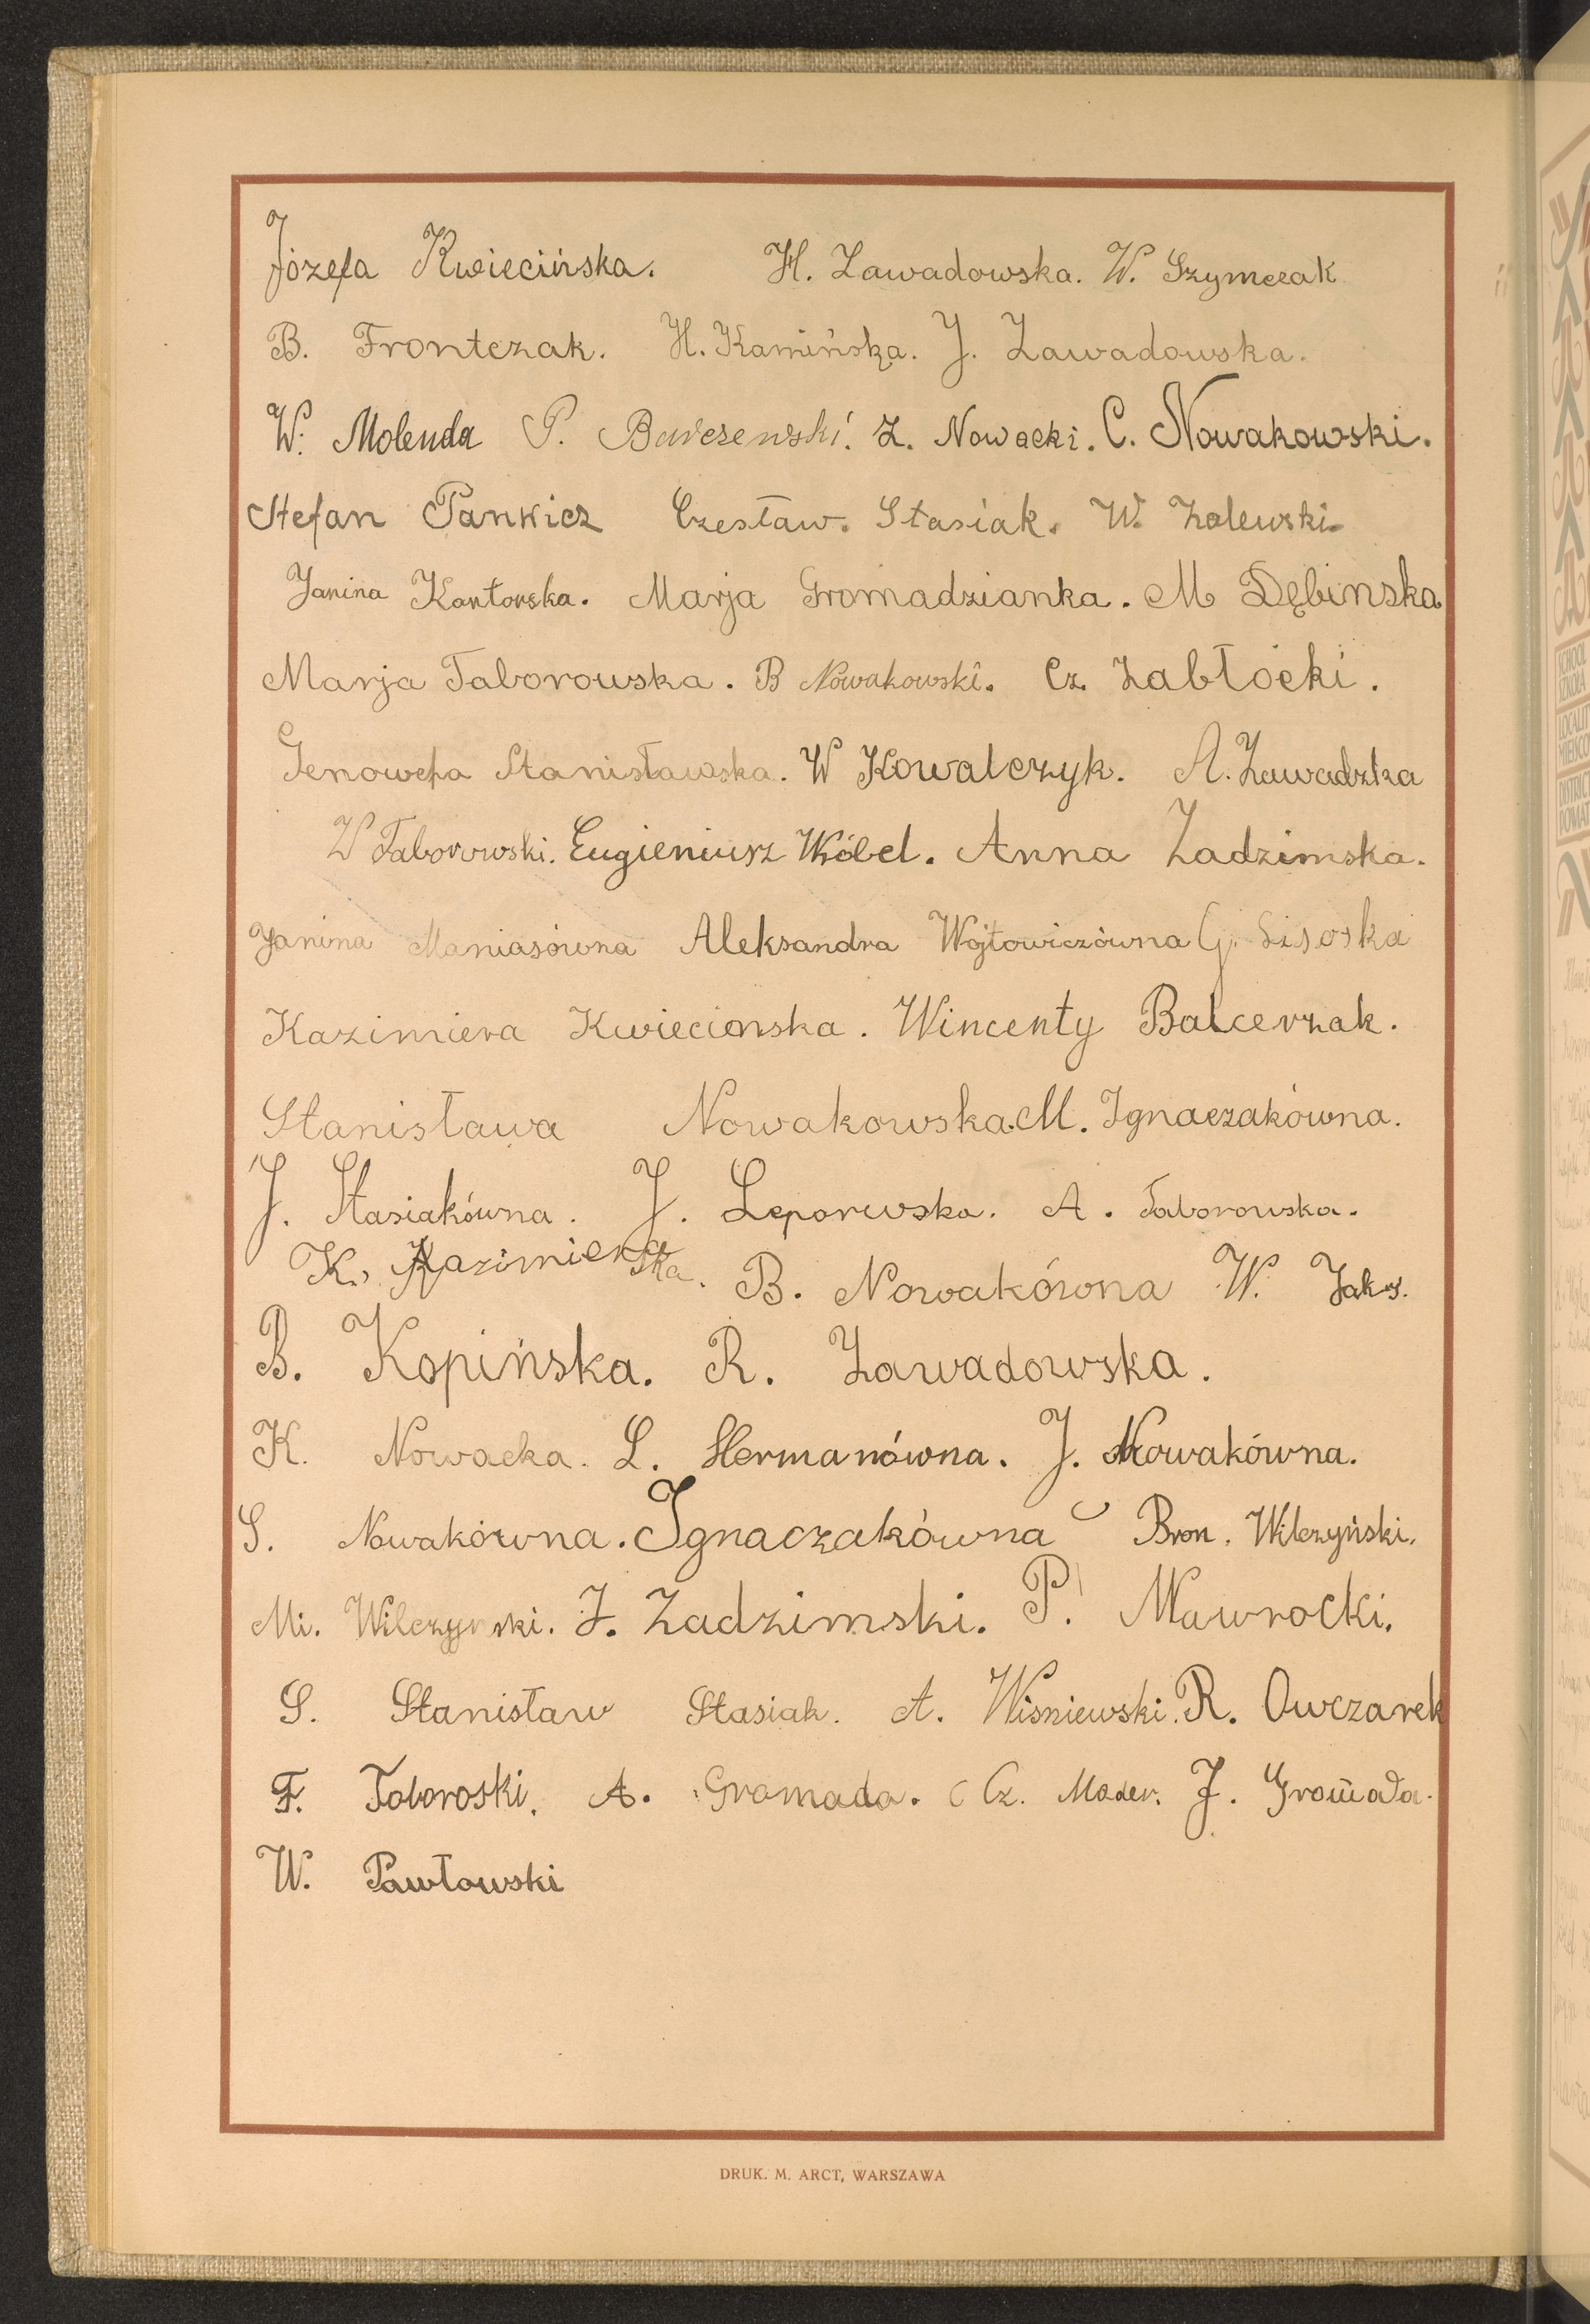 Józefa Kwiecińska. H. Zawadowska. W. Szymczak
B. Frontczak. H. Kamińska. J. Zawadowska.
W. Molenda P. Barczewski. Z. Nowacki. C. Nowakowski.
Stefan Pankicz Czesław. Stasiak. W. Zalewski.
Janina Kantorska. Marja Gromadzianka. M Dębinska
Marja Taborowska. B Nowakowski. Cz. Zabłocki.
Genowefa Stanisławska. W Kowalczyk. A. Zawadzka
W Taborowski. Eugieniusz Wróbel. Anna Zadzimska.
Janina Maniasówna Aleksandra Wojtowiczówna G. Lisoska
Kazimiera Kwiecionska. Wincenty Balcerzak.
Stanisława Nowakowska. M. Ignaczakówna.
J. Stasiakówna. J. Leporowska. A. Taborowska.
K. Kazimierska. B. Nowakówna W.
B. Kopińska. R. Zawadowska.
K. Nowacka. L. Hermanówna. J. Nowakówna.
S. Nowakówna. Ignaczakówna Bron. Wilczyński.
Mi. Wilczynski. J. Zadzimski. P. Nawrocki.
S. Stanisław Stasiak. A. Wisniewski. R. Owczarek
F. Taboroski. A. Gramada. Cz. J. Gromada.
W. Pawłowski
DRUK. M. ARCT, WARSZAWA